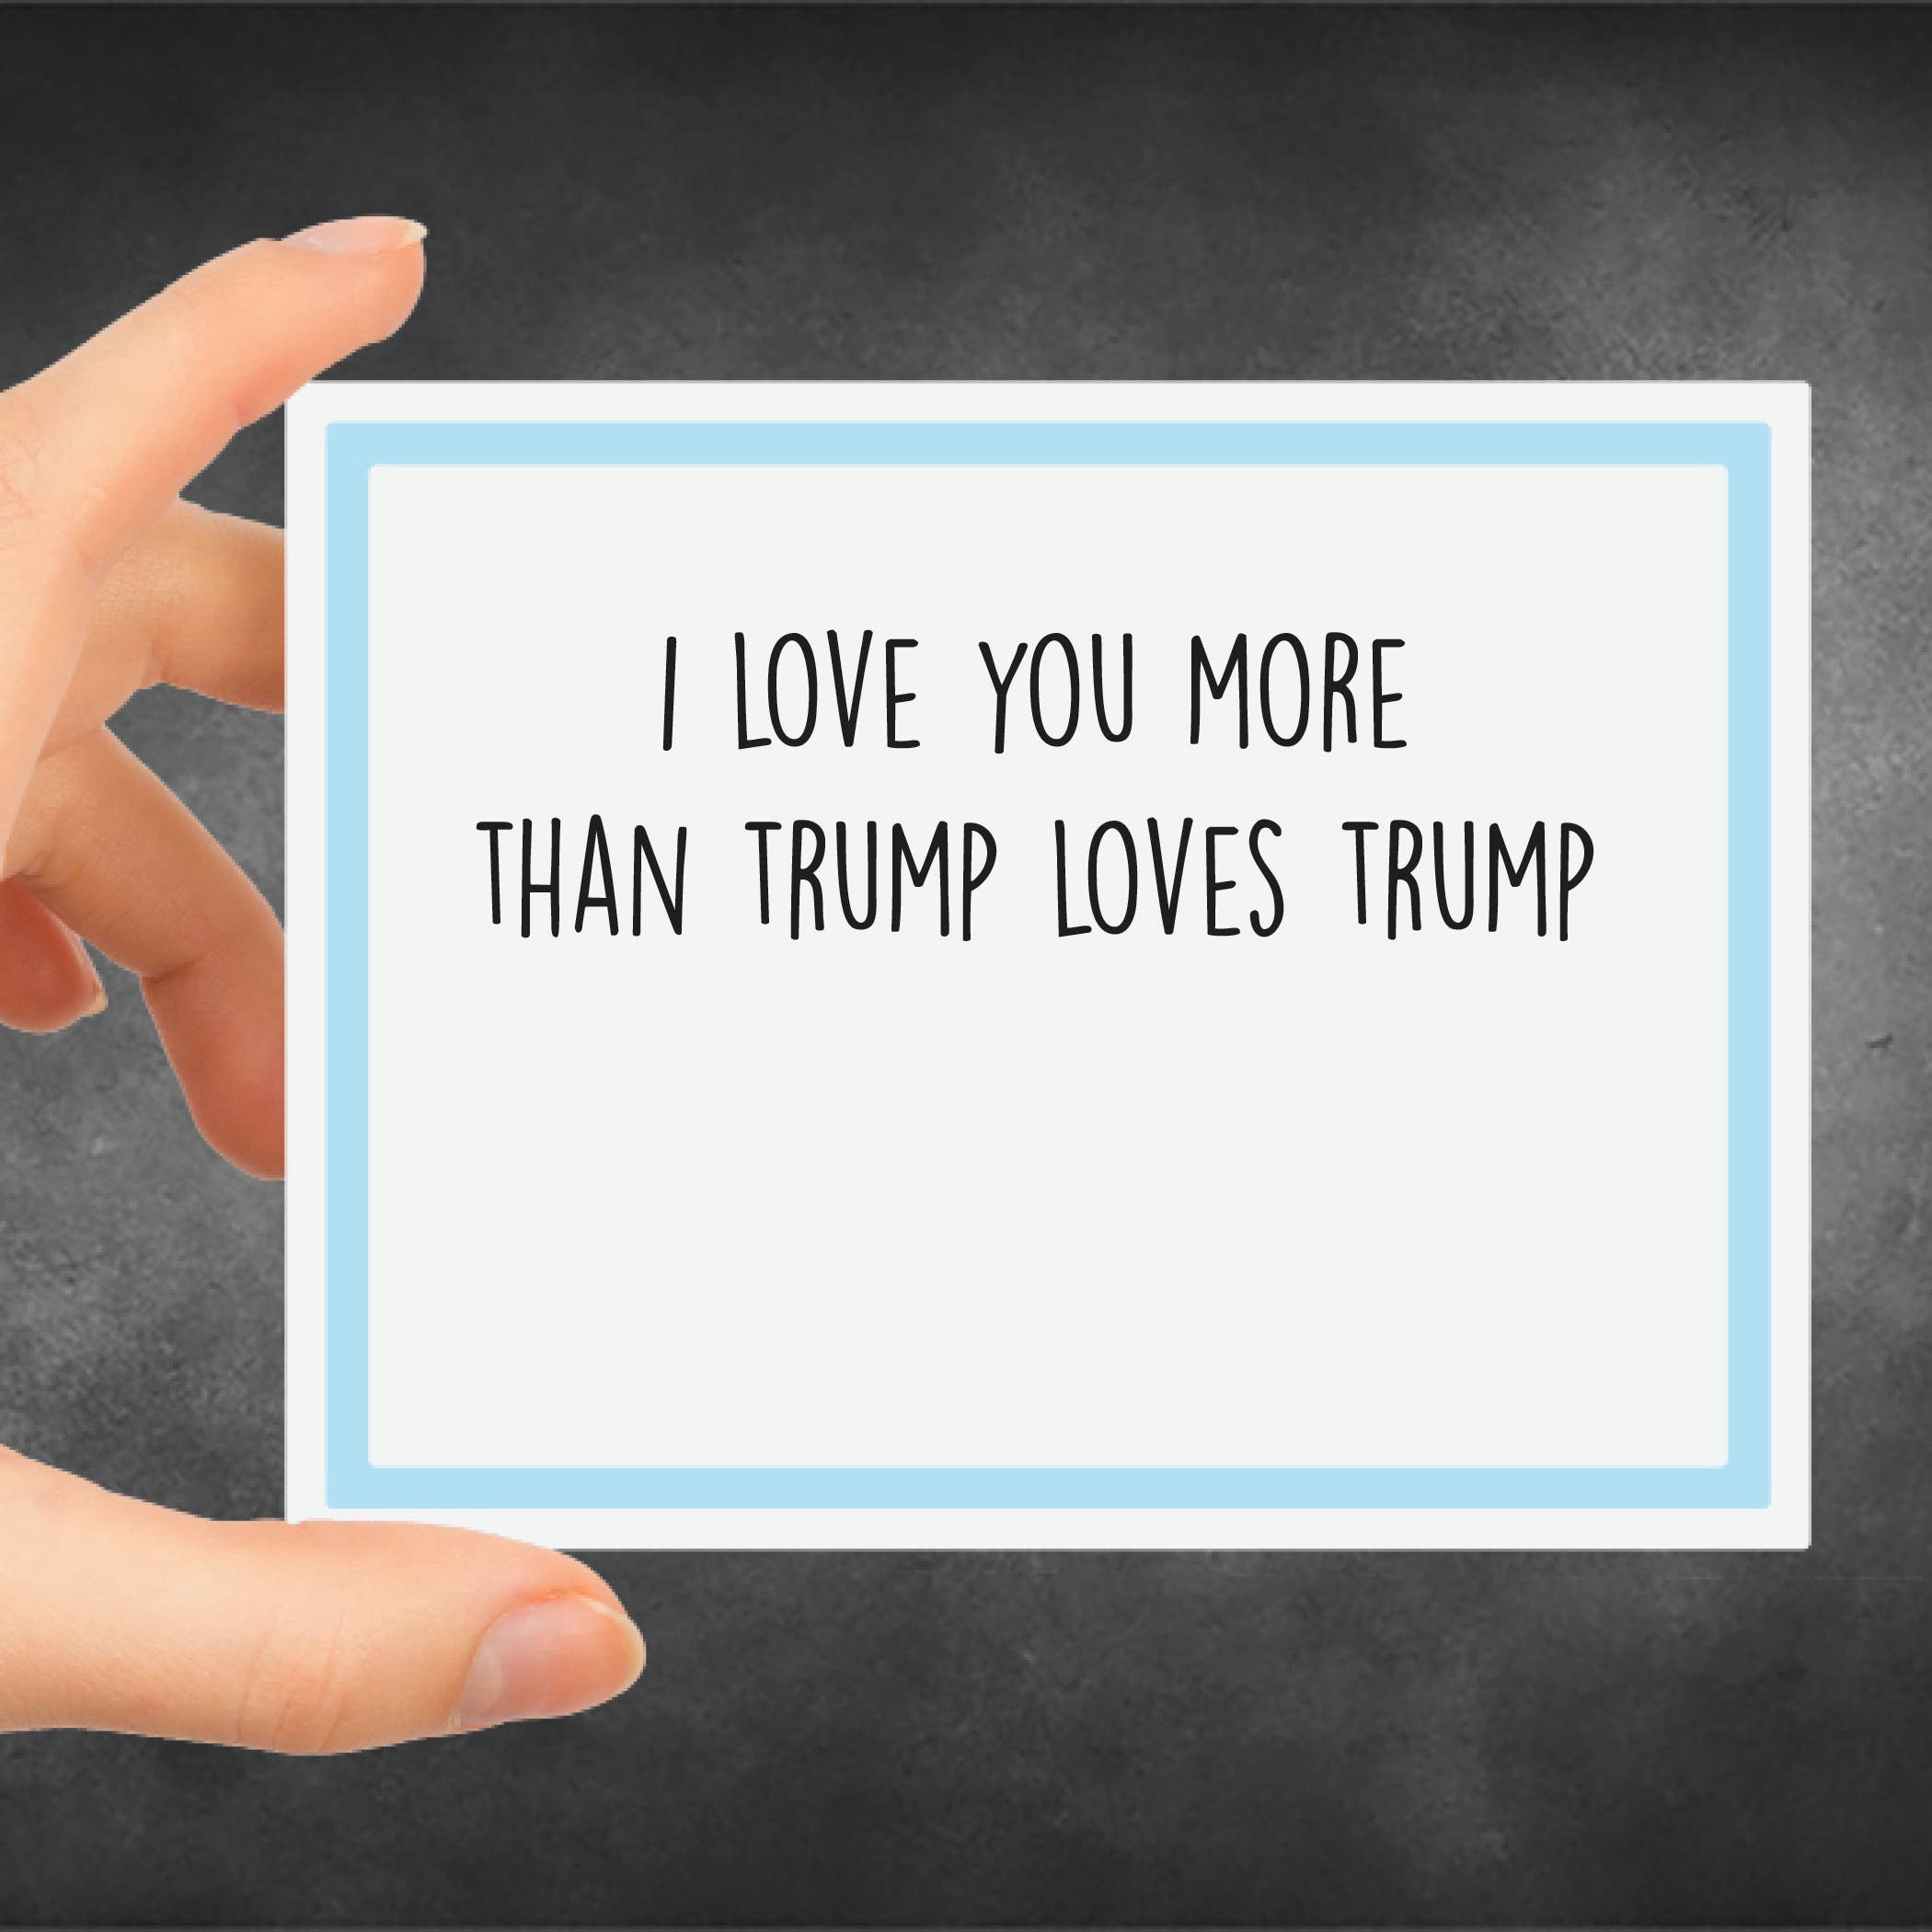 I LOVE YOU MORE
THAN TRUMP LOVES TRUMP